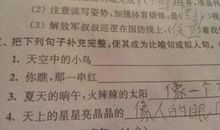 (2)注意读写姿势,加强体育锻炼,是
(3)解放军叔叔巡逻在国防线上,
二、把下列句子补充完整,使其成为比喻句或拟人句。
1. 天空中的小鸟
2. 你瞧,那一串红
3. 夏天的晌午,火辣辣的太阳 像一个
4. 天上的星星亮晶晶的 像人的眼